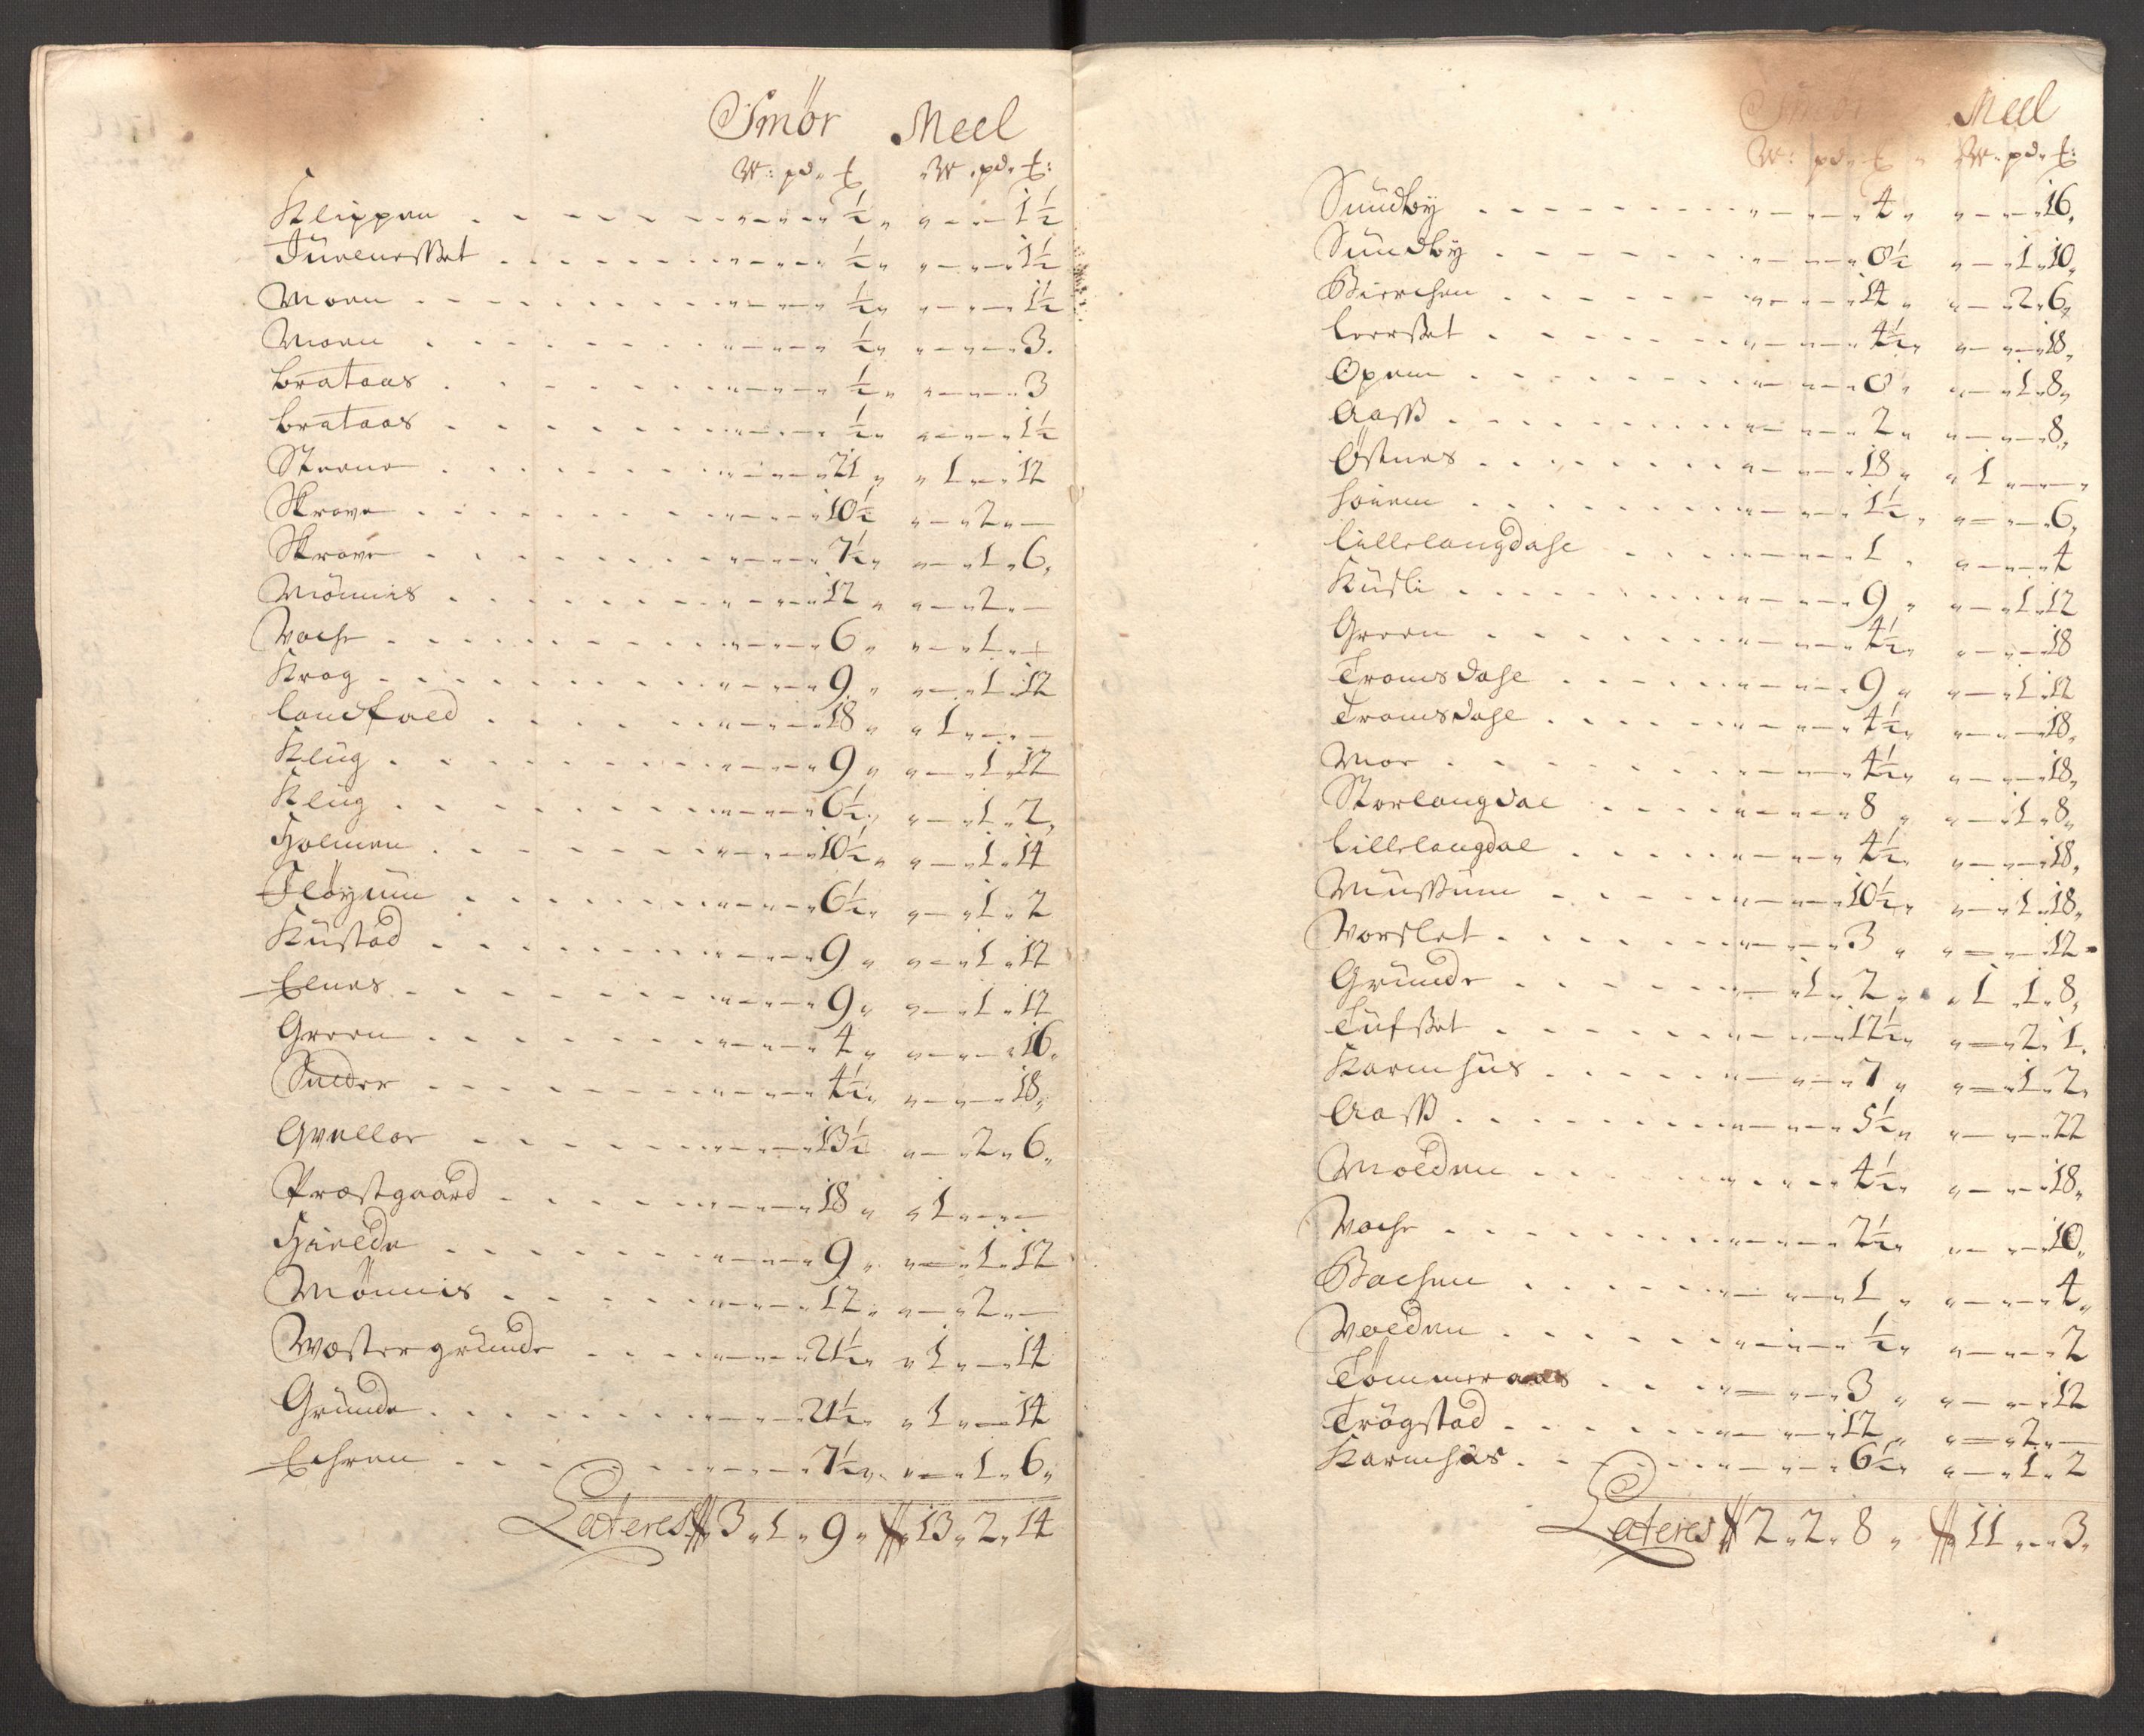 Smör Meel
W: pd. ℔ W. pd. ℔:
Klippen ½ 1½
Jüelnesset ½ 1½
Moen ½ 1½
Moen ½ 3
brataas ½ 3
brataas ½ 1½
Steene 21 1 - 12
Skrove 10½ 2 -
Skrove 7½ 1 6
Mönnis 12 2 -
Wohe 6 1 -
Krog 9 1 12
landfald 18 1 - -
Klüg 9 1 12
Klüg 6½ 1 2
Holmen 10½ 1 14
Flöyum 6½ 1 2
Küstad 9 1 12
Elnes 9 1 12
Green 4 16
Sueder 4½ 18
Qveller 13½ 2 6
Præstgaard 18 1 - -
Hielde 9 1 12
Mönnis 12 2 -
Wæstergrunde 21½ 1 - 14
Gründe 21½ 1 - 14
Ehren 7½ 1 6
Lateres 3 1 9 13 2 14
Smör Meel
W: pd. ℔ W. pd. ℔:
Sundby 4 16
Sündby 8½ 1 10
Bierchen 14 2 6
leerset 4½ 18
Opem 8 1 8
Aass 2 8
Östnes 18 1 - -
hoiem 1½ 6
lillelangdahl 1 4
Küsli 9 1 12
Green 4½ 18
Tromsdahl 9 1 12
Tromsdahl 4½ 18
Moe 4½ 18
Storlangdal 8 1 8
lillelangdal 4½ 18
Müssum 10½ 1 18
Worslet 3 12
Gründe 1 2 1 1 8
Tüfset 12½ 2 1
Karmhus 7 1 2
Aass 5½ 22
Molden 4½ 18
Wohe 2½ 10
Bachen 1 4
Wolden ½ 2
Tömmeraas 3 12
Trögstad 12 2 -
Karmhus 6½ 1 2
Lateres 2 2 8 11 - 3